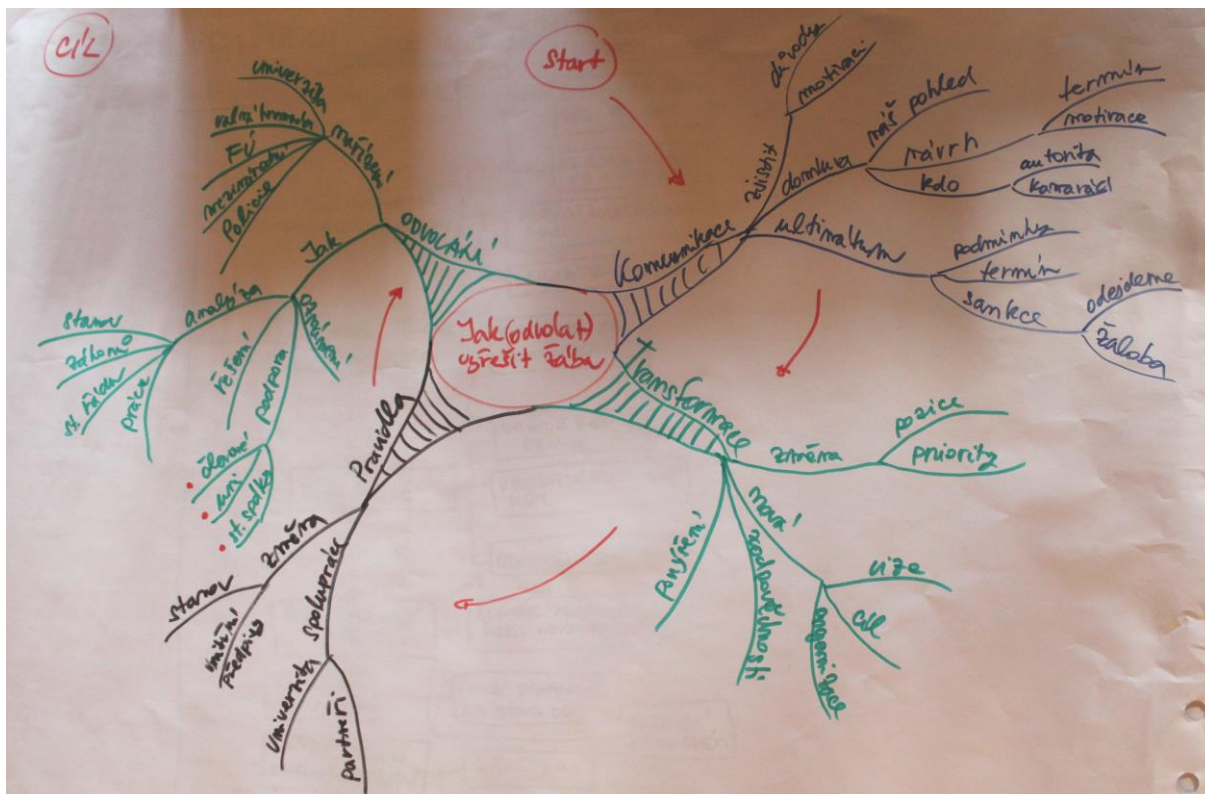 CÍL
Start
Jak (odvolat)
vyřešit Žába
Komunikace
důvody
motivaci
domluva
náš pohled
návrh
termín
motivace
kdo
autorita
kamarádi
ultimátum
podmínky
termín
sankce
odejdeme
žaloba
Transformace
změna
pozice
priority
nová
vize
cíl
organizace
zodpovědnosti
povýšení
Pravidla
změna
stanov
vnitřní
předpisy
spolupráce
Univerzita
partneři
ODVOLÁNÍ
nařízení
univerzita
valná hromada
FÚ
mezinárodní
Policie
Jak
analýza
stanov
zákonů
st. řádu
práce
řešení
podpora
členové
st. spolky